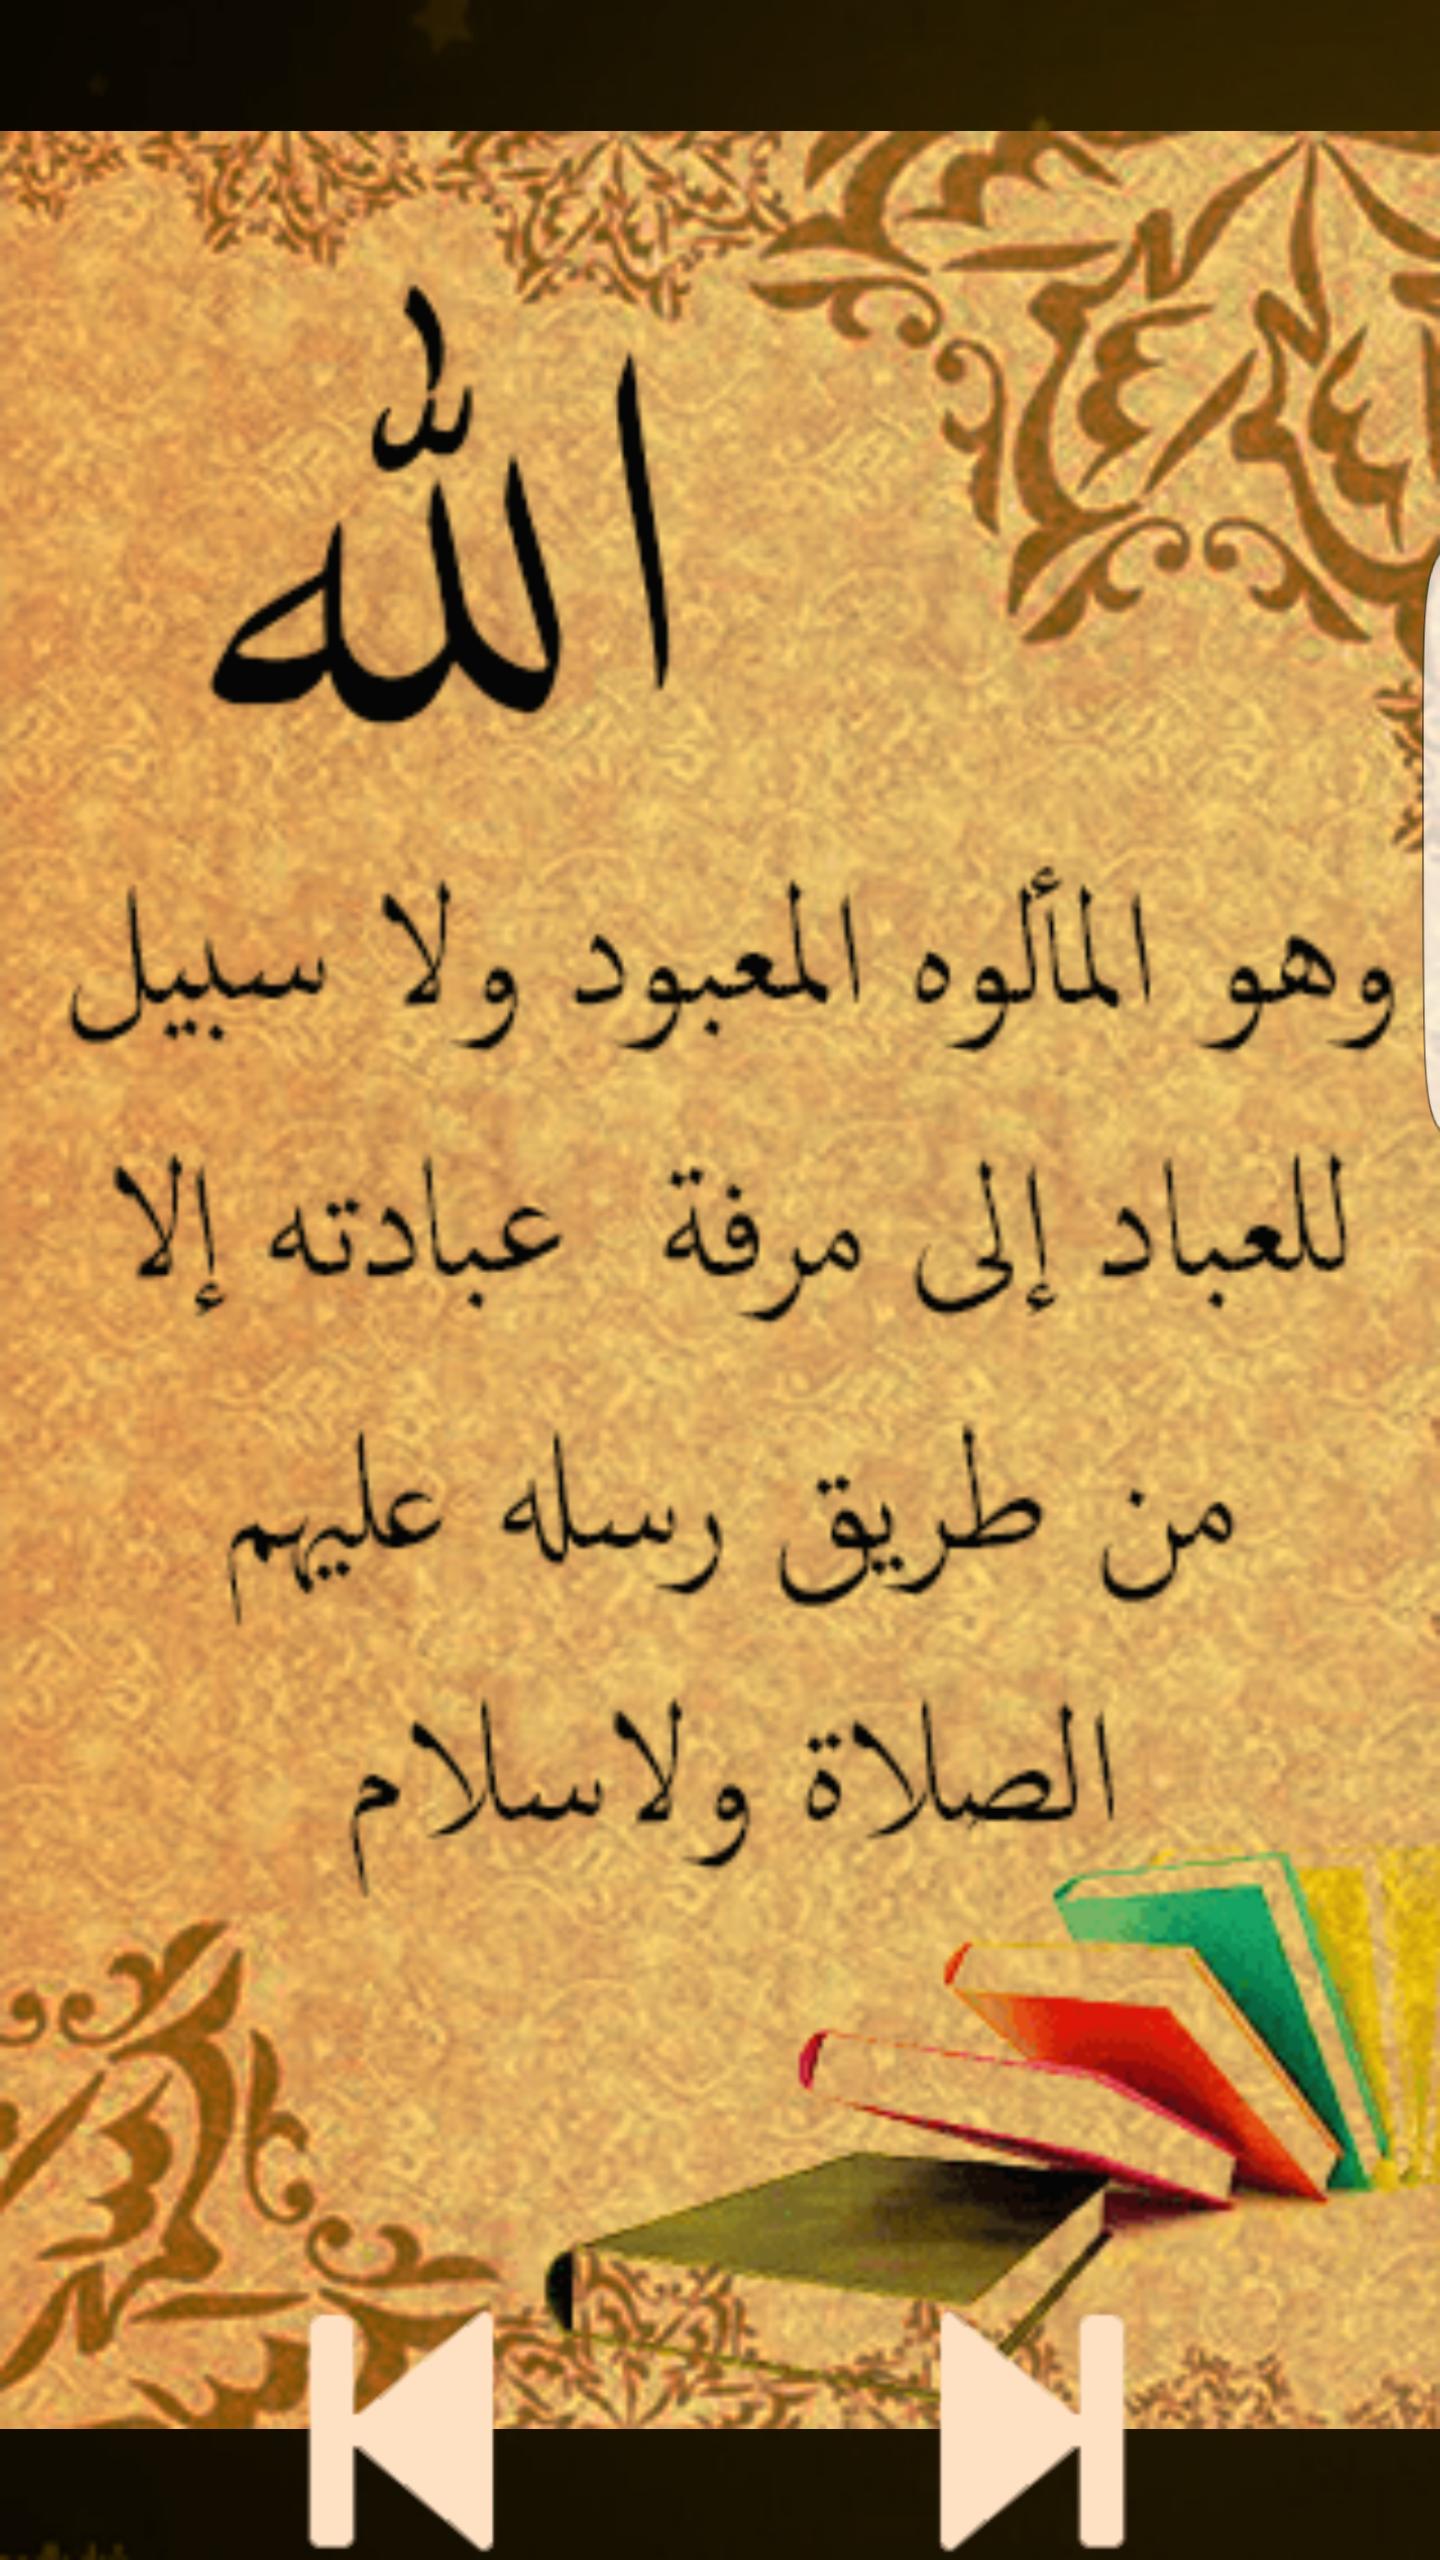 الله
وهو المألوه المعبود ولا سبيل
للعباد إلى مرفة عبادته إلا
من طريق رسله عليهم
الصلاة ولاسلام